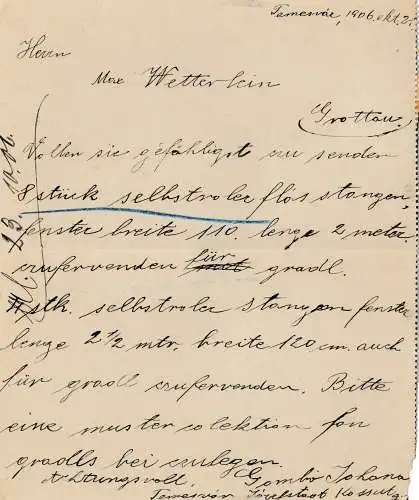 Temesvár, 1906. okt. 2
Herrn
Max Wetterlein
Grottau.
Vollen sie gefähligst zu senden
8 stück selbstroler flos stangen
fenster breite 110. lenge 2 meter
zufervenden für gradl.
stk. selbstroler stangen fenster
lenge 2 1/2 mtr. breite 120 cm. auch
für gradl zufervenden. Bitte
eine muster colektion fon
gradls bei zulegen.
Achtungsvoll. Gombó Johana
Temesvár Josefstadt Kossuth
23/10.06.